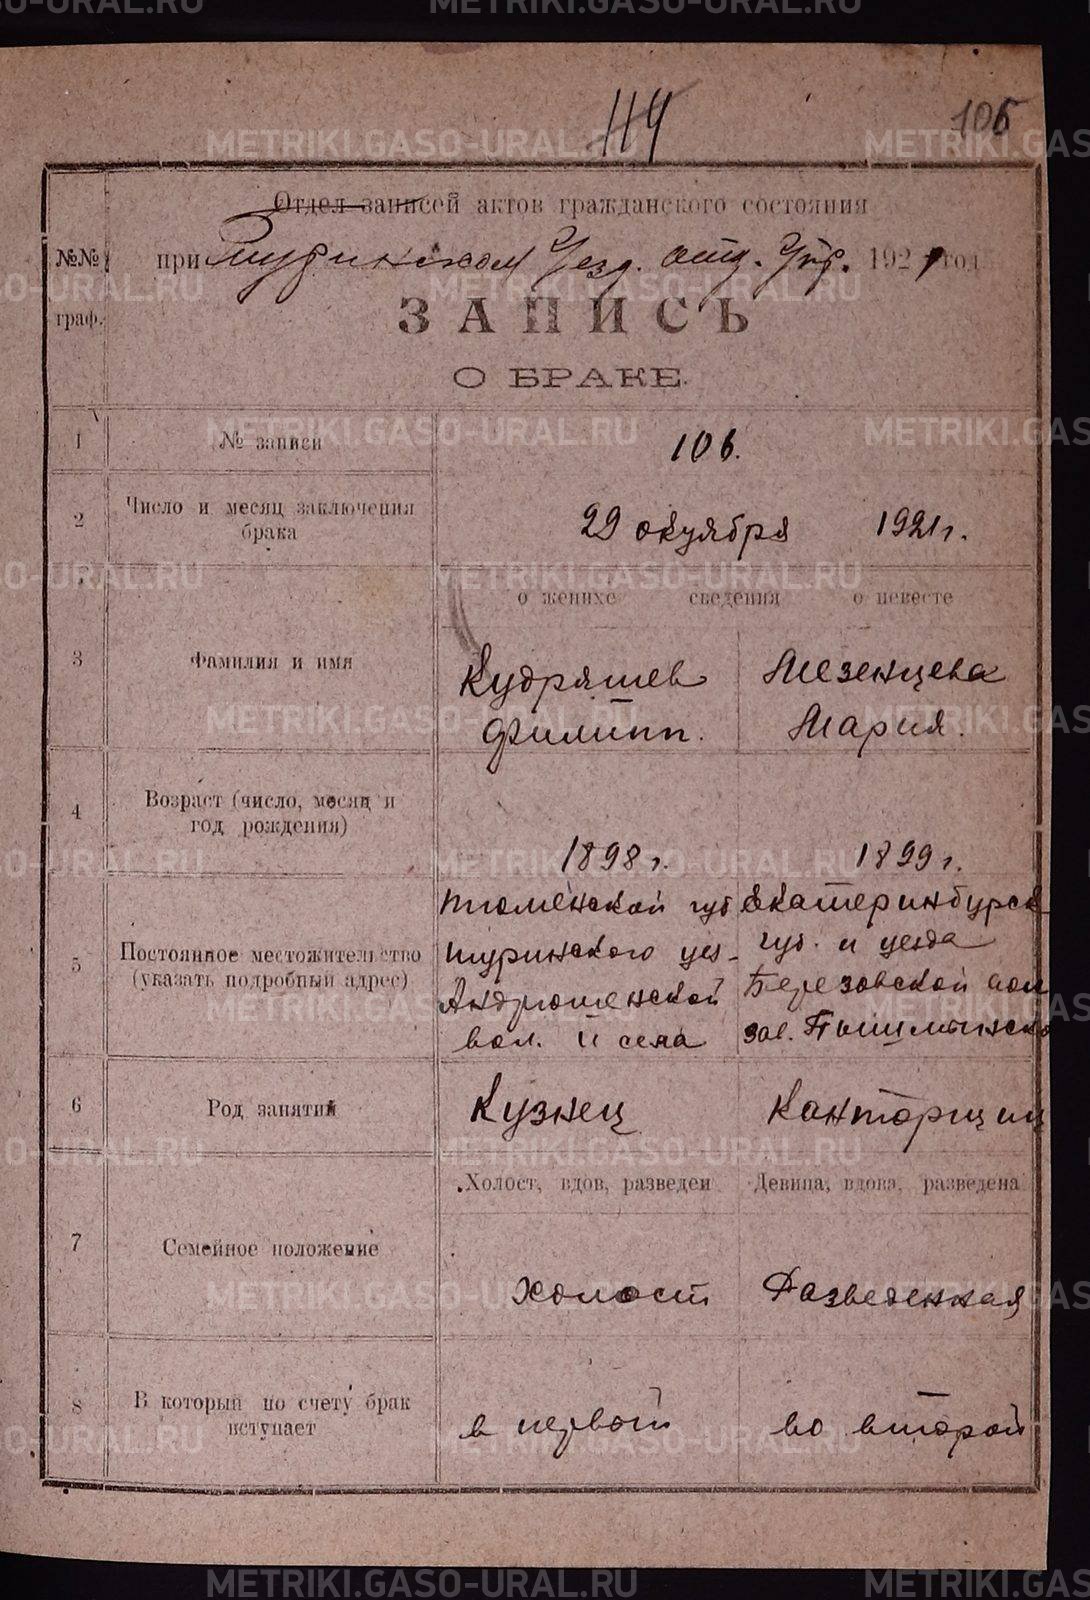 114
106
Отдел записей актов гражданского состояния
№№ граф.
при Туринском Уезд. отд. Упр. 1921 год
ЗАПИСЬ
О БРАКЕ.
1 № записи 106.
2 Число и месяц заключения
брака
29 октября 1921 г.
о женихе сведения о невесте
3 Фамилия и имя
Кудряшев
Филипп.
Мезенцева
Мария.
4 Возраст (число, месяц и
год рождения)
1898 г.
1899 г.
5 Постоянное местожительство
(указать подробный адрес)
Тюменской губ
Туринского уез-
Андрюшенской
вол. и села
Екатеринбурск
губ. и уезда
Березовской вол
зав. Пышминско
6 Род занятий
Кузнец
Канторщиц
Холост, вдов, разведен
Девица, вдова, разведена
7 Семейное положение
холост
Разведенная
8 В который по счету брак
вступает
в первой
во второй
METRIKI.GASO-URAL.RU